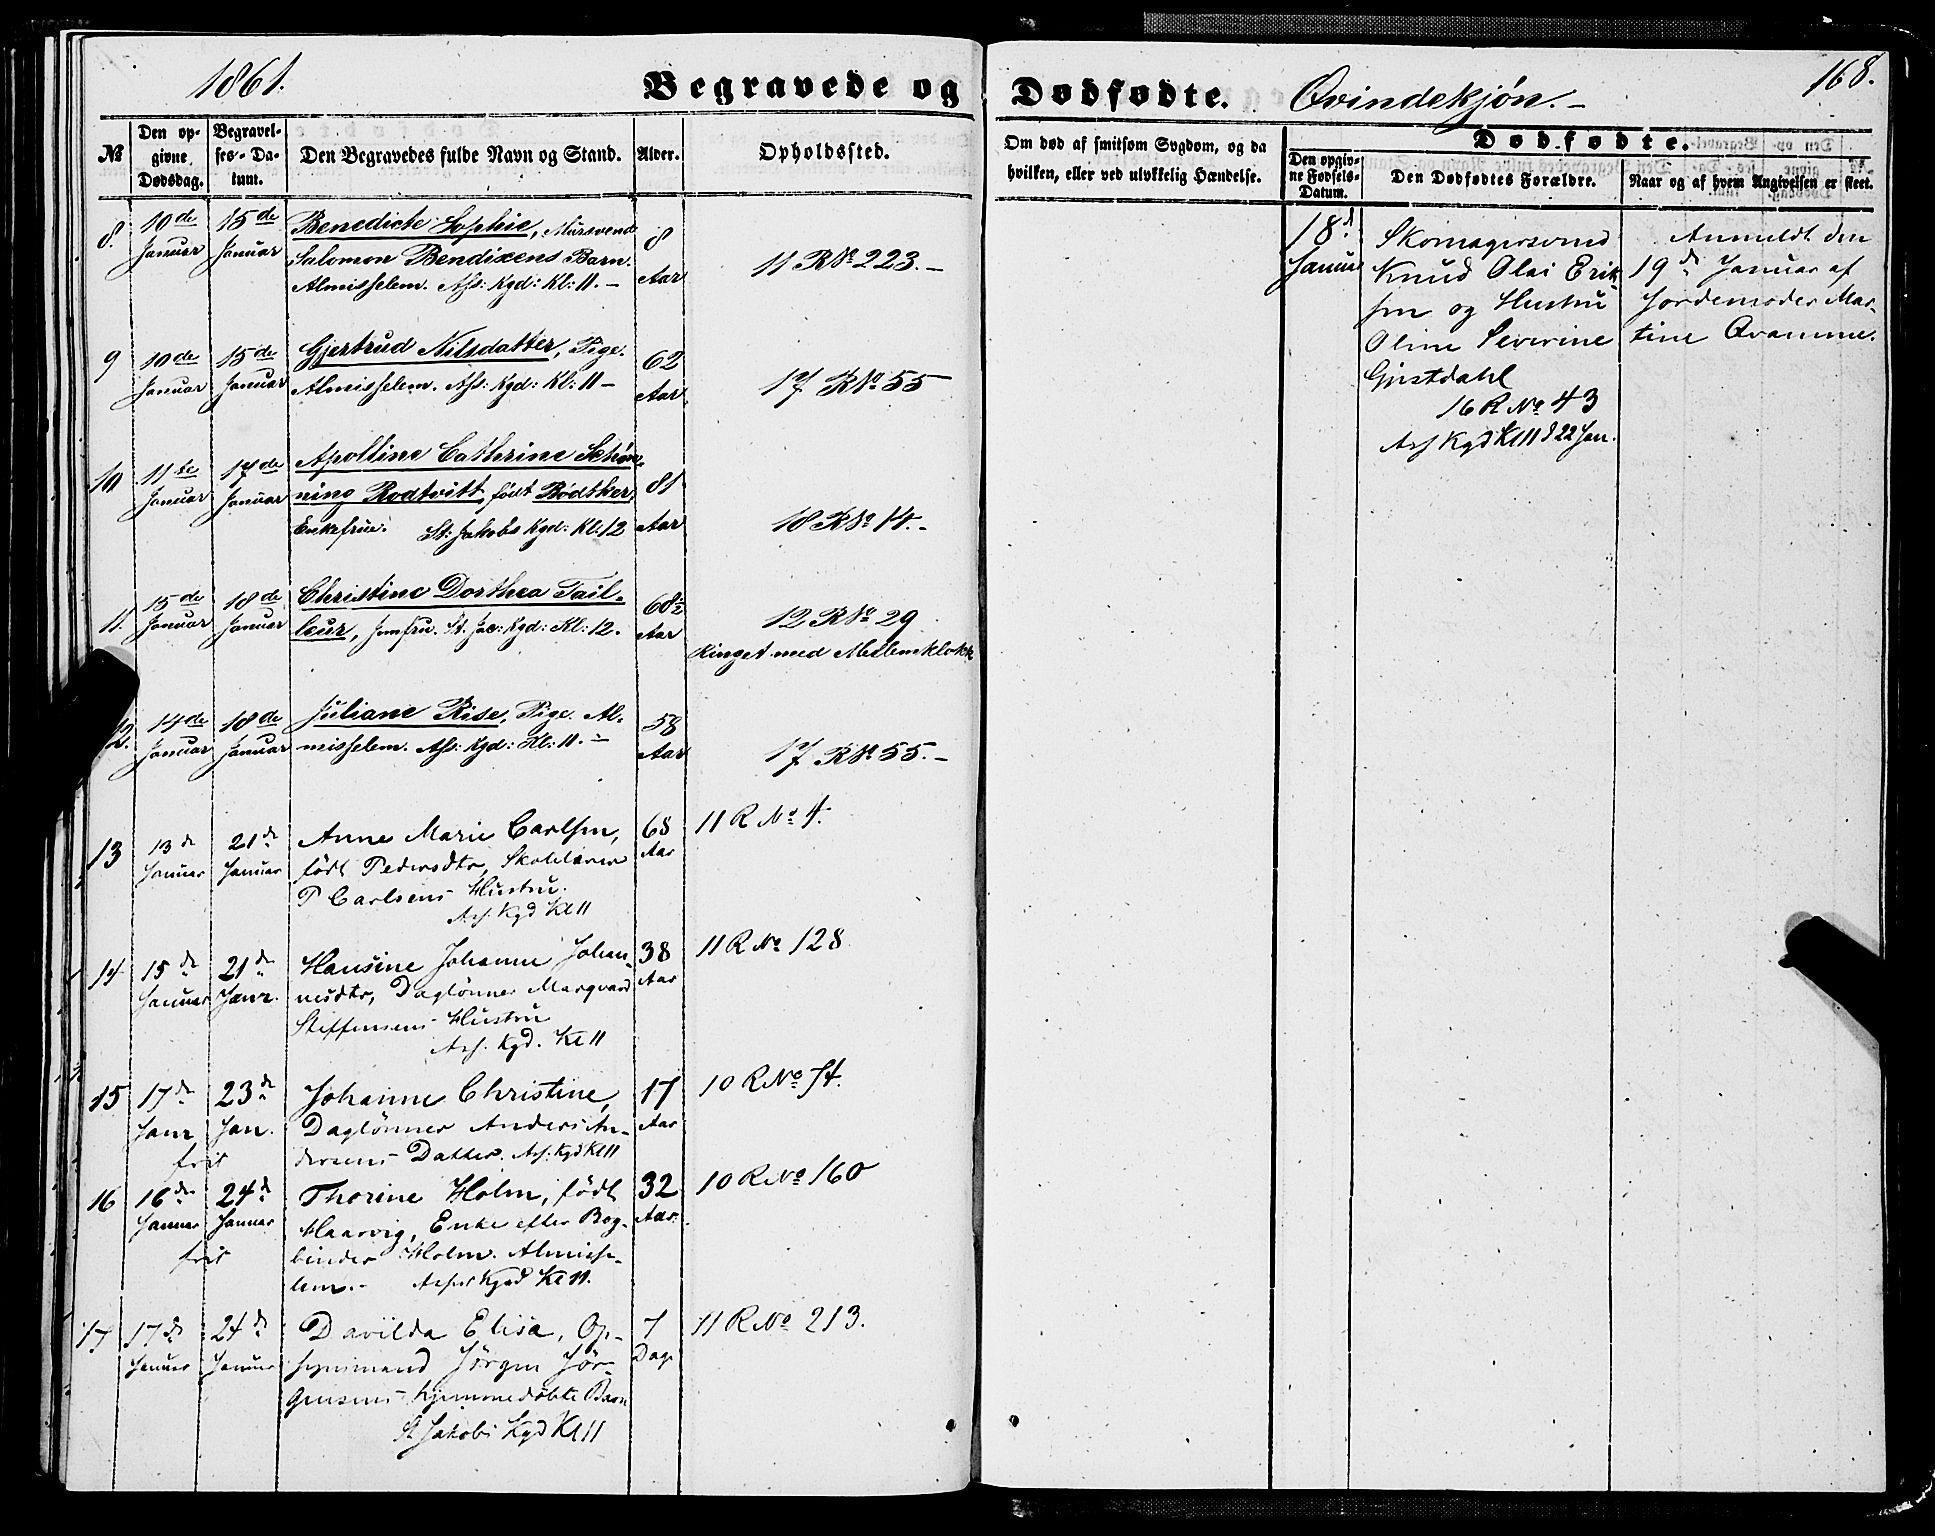 1861.
Begravede og Dødfødte. Qvindekjøn.-
168.
№
Den opgivne Dødsdag.
Begravelses-Datum.
Den Begravedes fulde Navn og Stand.
Alder.
Opholdssted.
Om død af smitsom Sygdom, og da
hvilken, eller ved ulykkelig Hændelse.
Dødfødte.
Den opgivne Fødsels-Datum.
Den Dødfødtes Forældre.
Naar og af hvem Angivelsen er skeet.
8. 10de Januar 15de Januar
Benedicte Sophie, Mursvend
Salomon Bendixens Barn.
Almisselem. Ass: Kgd: Kl: 11. –
8 Aar
11 R № 223. –
9 10de Januar 15de Januar
Gjertrud Nilsdatter, Pige.
Almisselem. Ass: Kgd: Kl: 11 –
62 Aar
17 R № 55
10 11te Januar 17de Januar
Apolline Cathrine Schøn-
ning Rodtvitt, født Bødtker,
Enkefrue. St: Jakobs Kgd: Kl: 12
81 Aar
18 R № 14. –
11. 15de Januar 18de Januar
Christine Dorthea Tail-
leur, Jomfru. St. Jac: Kgd: Kl: 12.
68½ Aar
12 R № 29
Ringet med Mellemklokk
12. 14de Januar 18de Januar
Juliane Rise, Pige. Al-
misselem. Ass: Kgd: Kl: 11. –
58 Aar
17 R № 55. –
13 13de Januar 21de Januar
Anne Marie Carlsen,
født Pedersdtr, Skolelærer
P Carlsens Hustru.
Ass. Kgd Kl 11
68 Aar
11 R № 4.
14 15de Januar 21de Janr.
Hansine Johanne Johan-
nesdtr, Daglønner Marqvard
Steffensens Hustru
Ass. Kgd. Kl 11
38 Aar
11 R № 128
15 17de Janr 23de Jan.
frit
Johanne Christine,
Daglønner Anders An-
dersens Datter. Ass. Kgd Kl 11
17 Aar
10 R № 74.
16 16de Januar 24de Januar
frit
Thorine Holm, født
Haarvig, Enke efter Bog-
binder Holm. Almisse-
lem. – Asst Kgd Kl 11.
32 Aar.
10 R № 160
17 17de Januar 24de Januar
Davilda Elisa, Op-
synsmand Jørgen Jør-
gensens hjemmedøbte Barn
St Jakobs Kgd Kl 11
7 Dage
11 R № 213.
18d. Januar
Skomagersvend
Knud Olai Erik-
sen og Hustru
Oline Severine
Gjustdahl
16 R № 43
Ass Kgd Kl 11 d 22 Jan.
Anmeldt den
19de Januar af
Jordemoder Mar-
tine Qvamme.